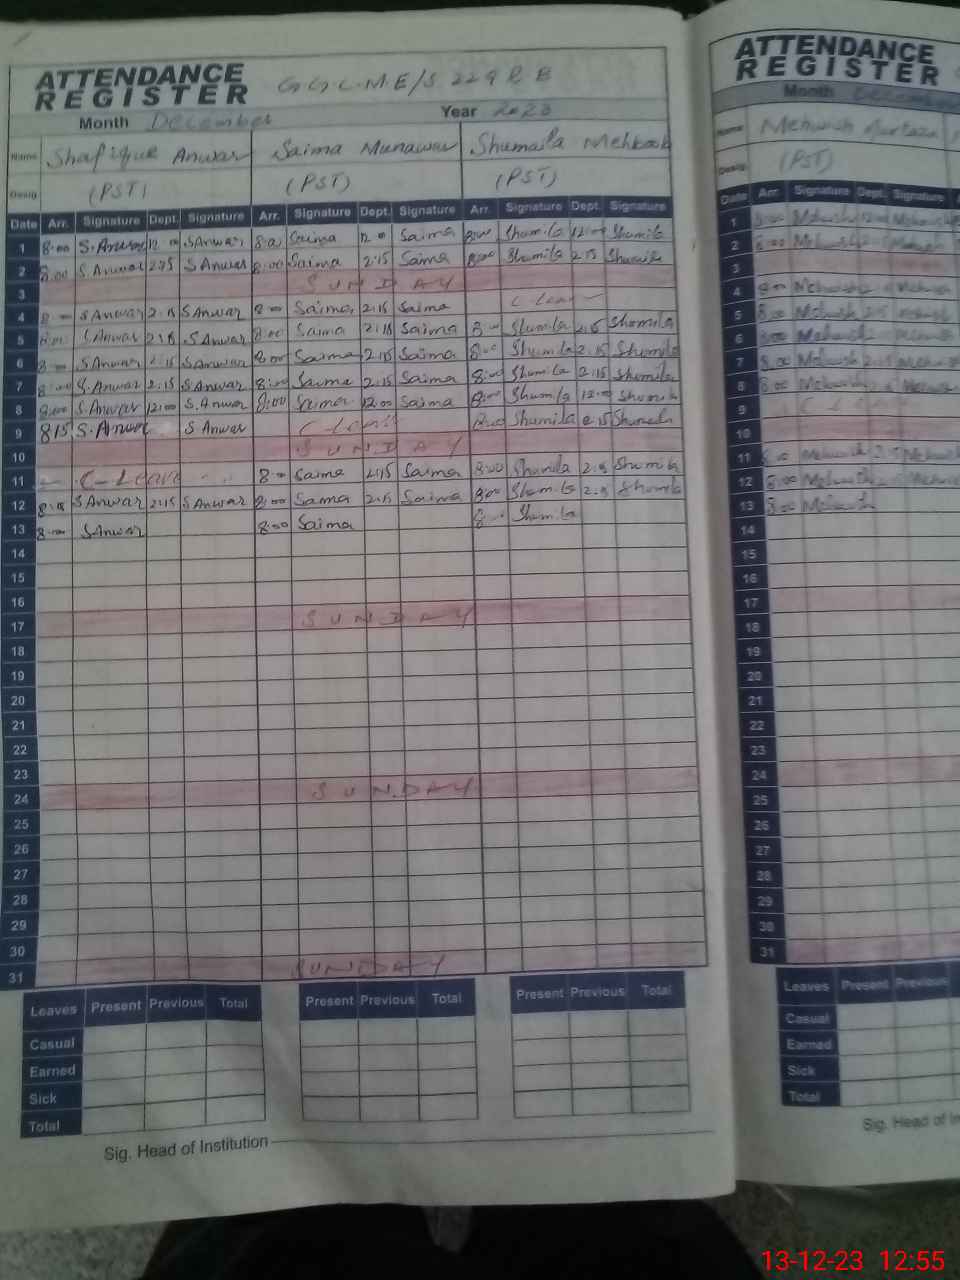 ATTENDANCE
REGISTER
Month December Year 2023
Name Shafique Anwar Saima Munawar Shumaila Mehboob
Desig. (PST) (PST) (PST)
Date Arr. Signature Dept. Signature Arr. Signature Dept. Signature Arr. Signature Dept. Signature
1 8:00 S.Anwar 12:00 S Anwar 8:00 Saima 12:00 Saima 8:00 Shumila 12:00 Shumila
2 8:00 S.Anwar 2:15 S Anwar 8:00 Saima 2:15 Saima 8:00 Shumila 2:15 Shumila
3 SUNDAY
4 8:00 S Anwar 2:15 S Anwar 8:00 Saima 2:15 Saima C Leave
5 8:00 S Anwar 2:15 S Anwar 8:00 Saima 2:15 Saima 8:00 Shumila 2:15 Shumila
6 8:00 S Anwar 2:15 S Anwar 8:00 Saima 2:15 Saima 8:00 Shumila 2:15 Shumila
7 8:00 S.Anwar 2:15 S Anwar 8:00 Saima 2:15 Saima 8:00 Shumila 2:15 Shumila
8 8:00 S.Anwar 12:00 S.Anwar 8:00 Saima 12:00 Saima 8:00 Shumila 12:00 Shumila
9 8:15 S.Anwar S Anwar C Leave 8:00 Shumila 2:15 Shumila
10 SUNDAY
11 C-Leave 8:00 Saima 2:15 Saima 8:00 Shumila 2:15 Shumila
12 8:15 S Anwar 2:15 S Anwar 8:00 Saima 2:15 Saima 8:00 Shumila 2:15 Shumila
13 8:00 S Anwar 8:00 Saima 8:00 Shumila
14
15
16
17 SUNDAY
18
19
20
21
22
23
24 SUNDAY
25
26
27
28
29
30
31 SUNDAY
Leaves Present Previous Total Present Previous Total Present Previous Total
Casual
Earned
Sick
Total
Sig. Head of Institution
ATTENDANCE
REGISTER
Month December
Name Mehwish Murtaza
Desig. (PST)
Date Arr. Signature Dept. Signature
1 8:00 Mehwish 12:00 Mehwish
2 8:00 Mehwish
3
4 8:00 Mehwish
5 8:00 Mehwish 2:15
6 8:00 Mehwish
7 8:00 Mehwish 2:15
8 8:00 Mehwish
9
10
11 Mehwish 2:15 Mehwish
12 8:00 Mehwish
13 8:00 Mehwish
14
15
16
17
18
19
20
21
22
23
24
25
26
27
28
29
30
31
Leaves Present Previous
Casual
Earned
Sick
Total
Sig. Head of
13-12-23 12:55